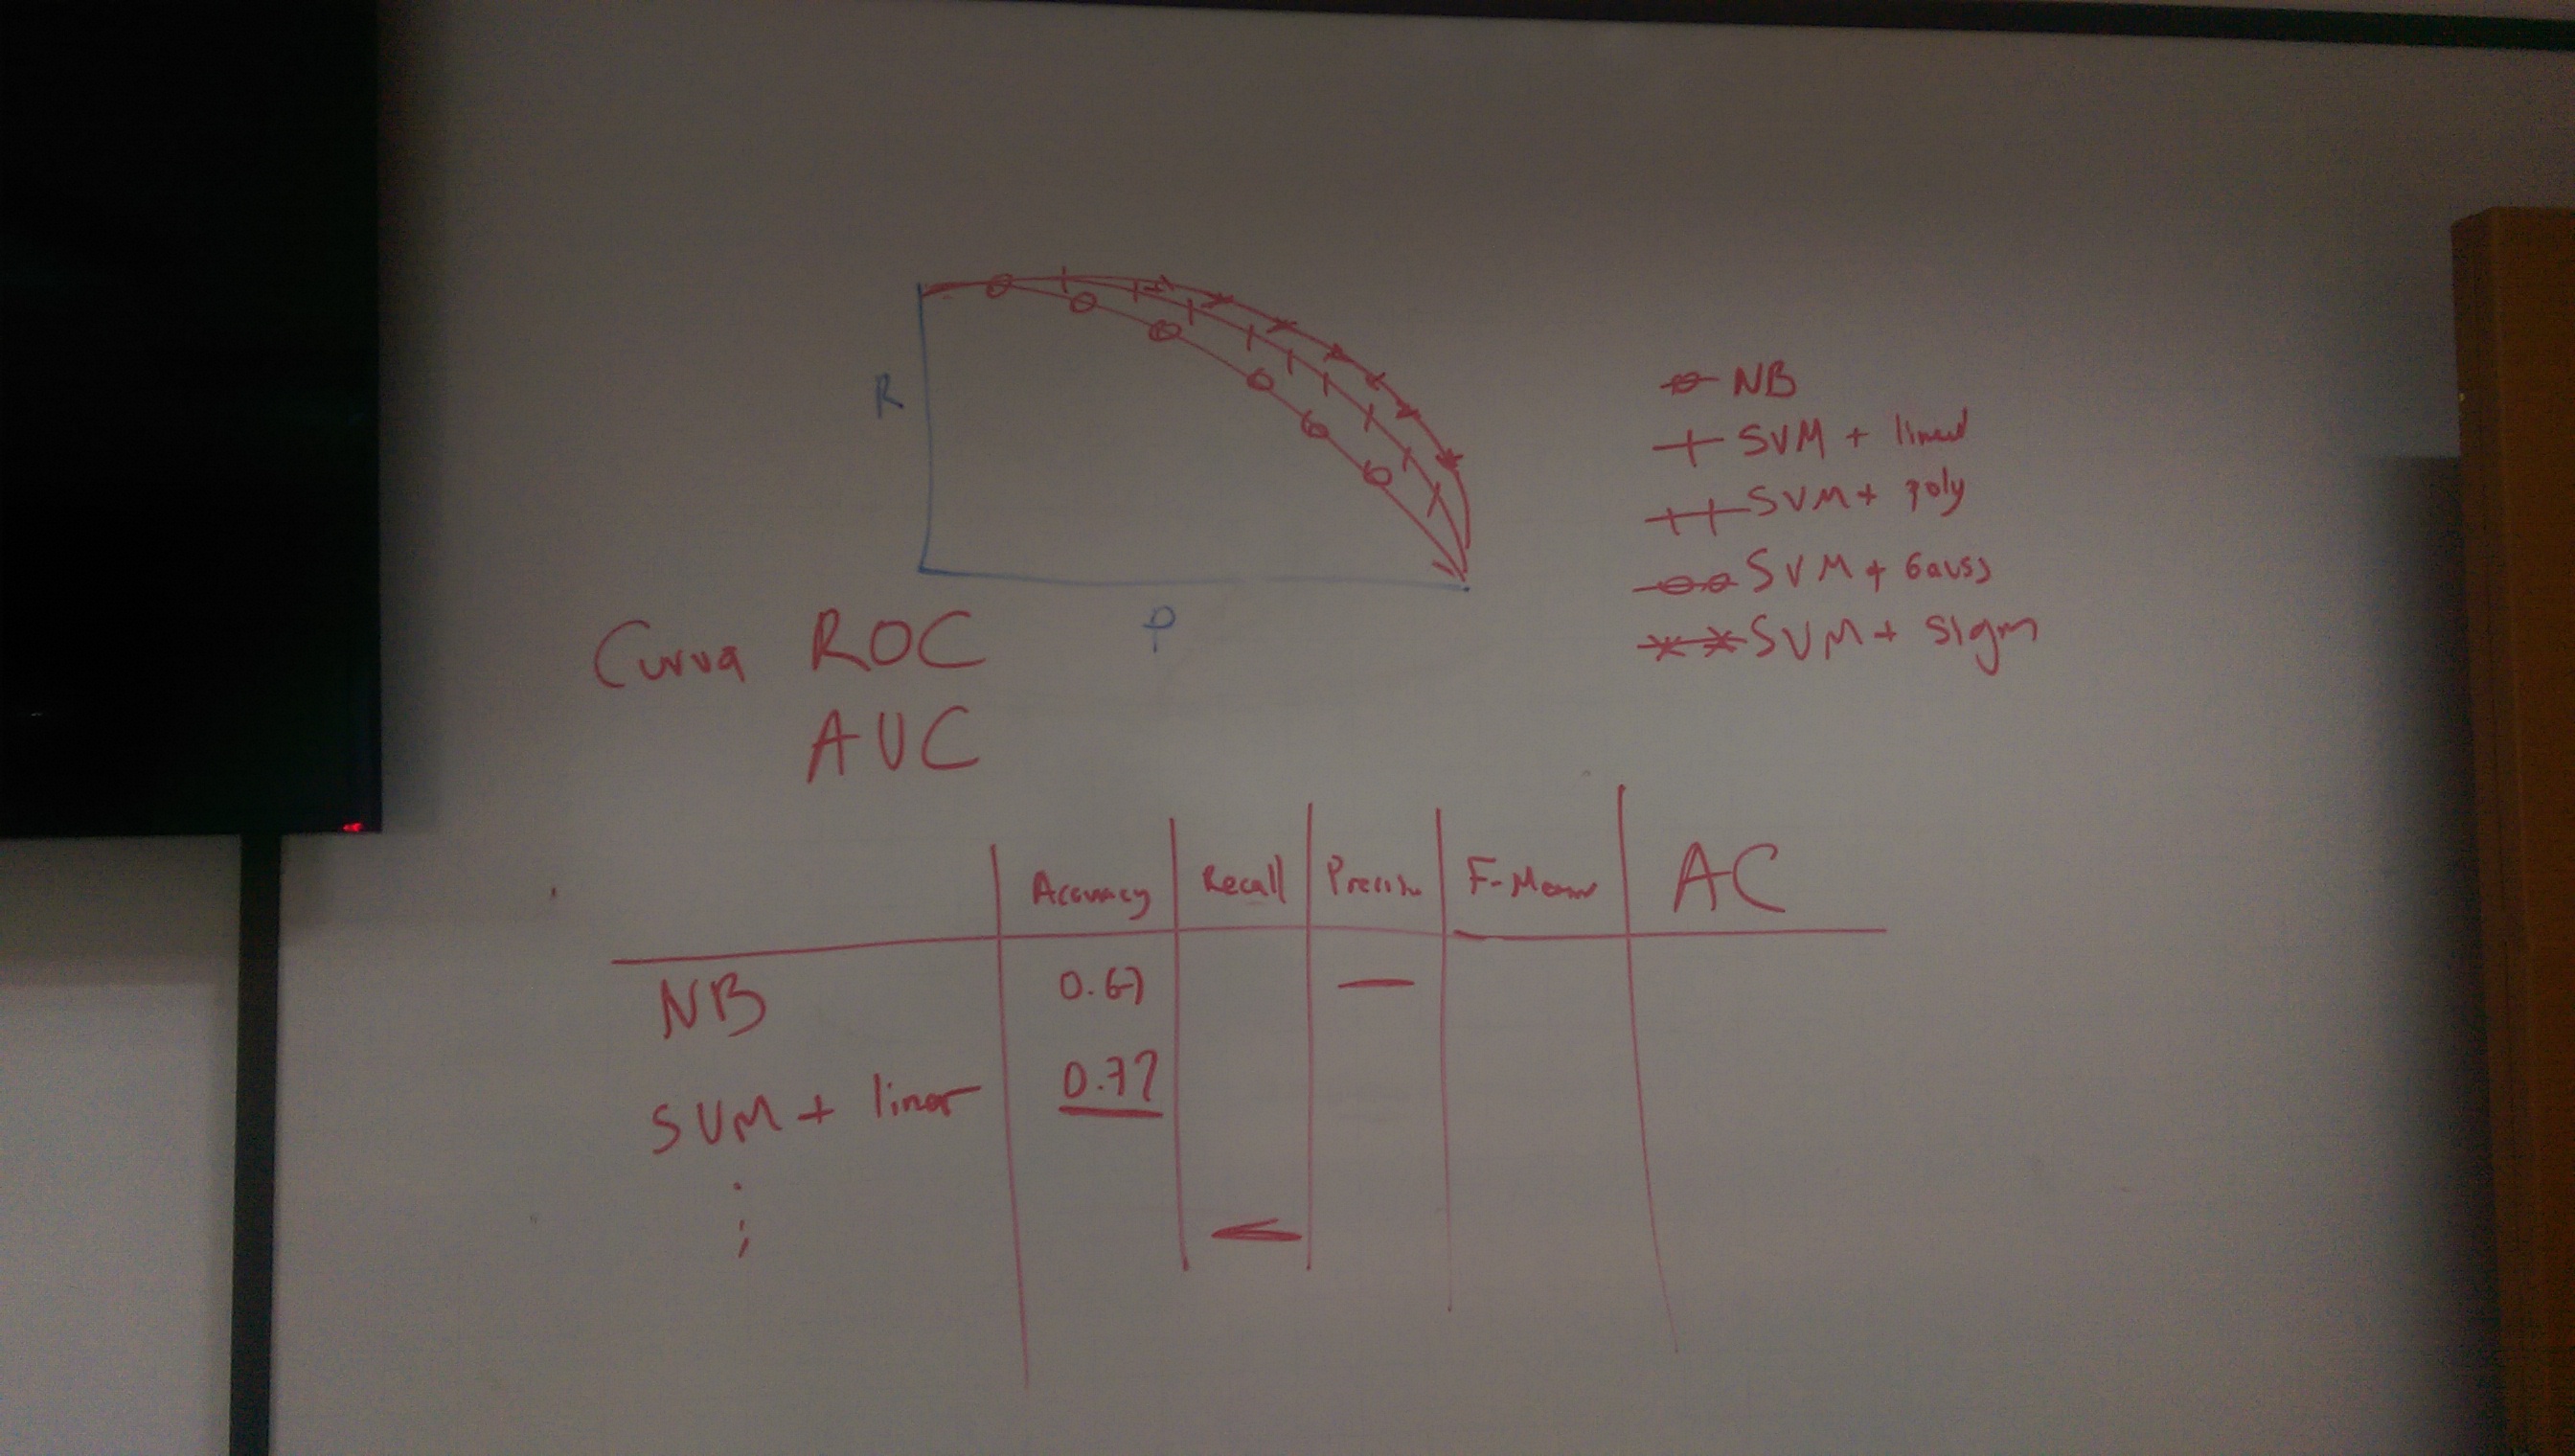 R
P
NB
+ SVM + lineal
++ SVM + poly
SVM + Gauss
** SVM + sigm
Curva ROC
AUC
Accuracy Recall F-Meas AC
NB 0.67 —
SVM + linear 0.77
:
: